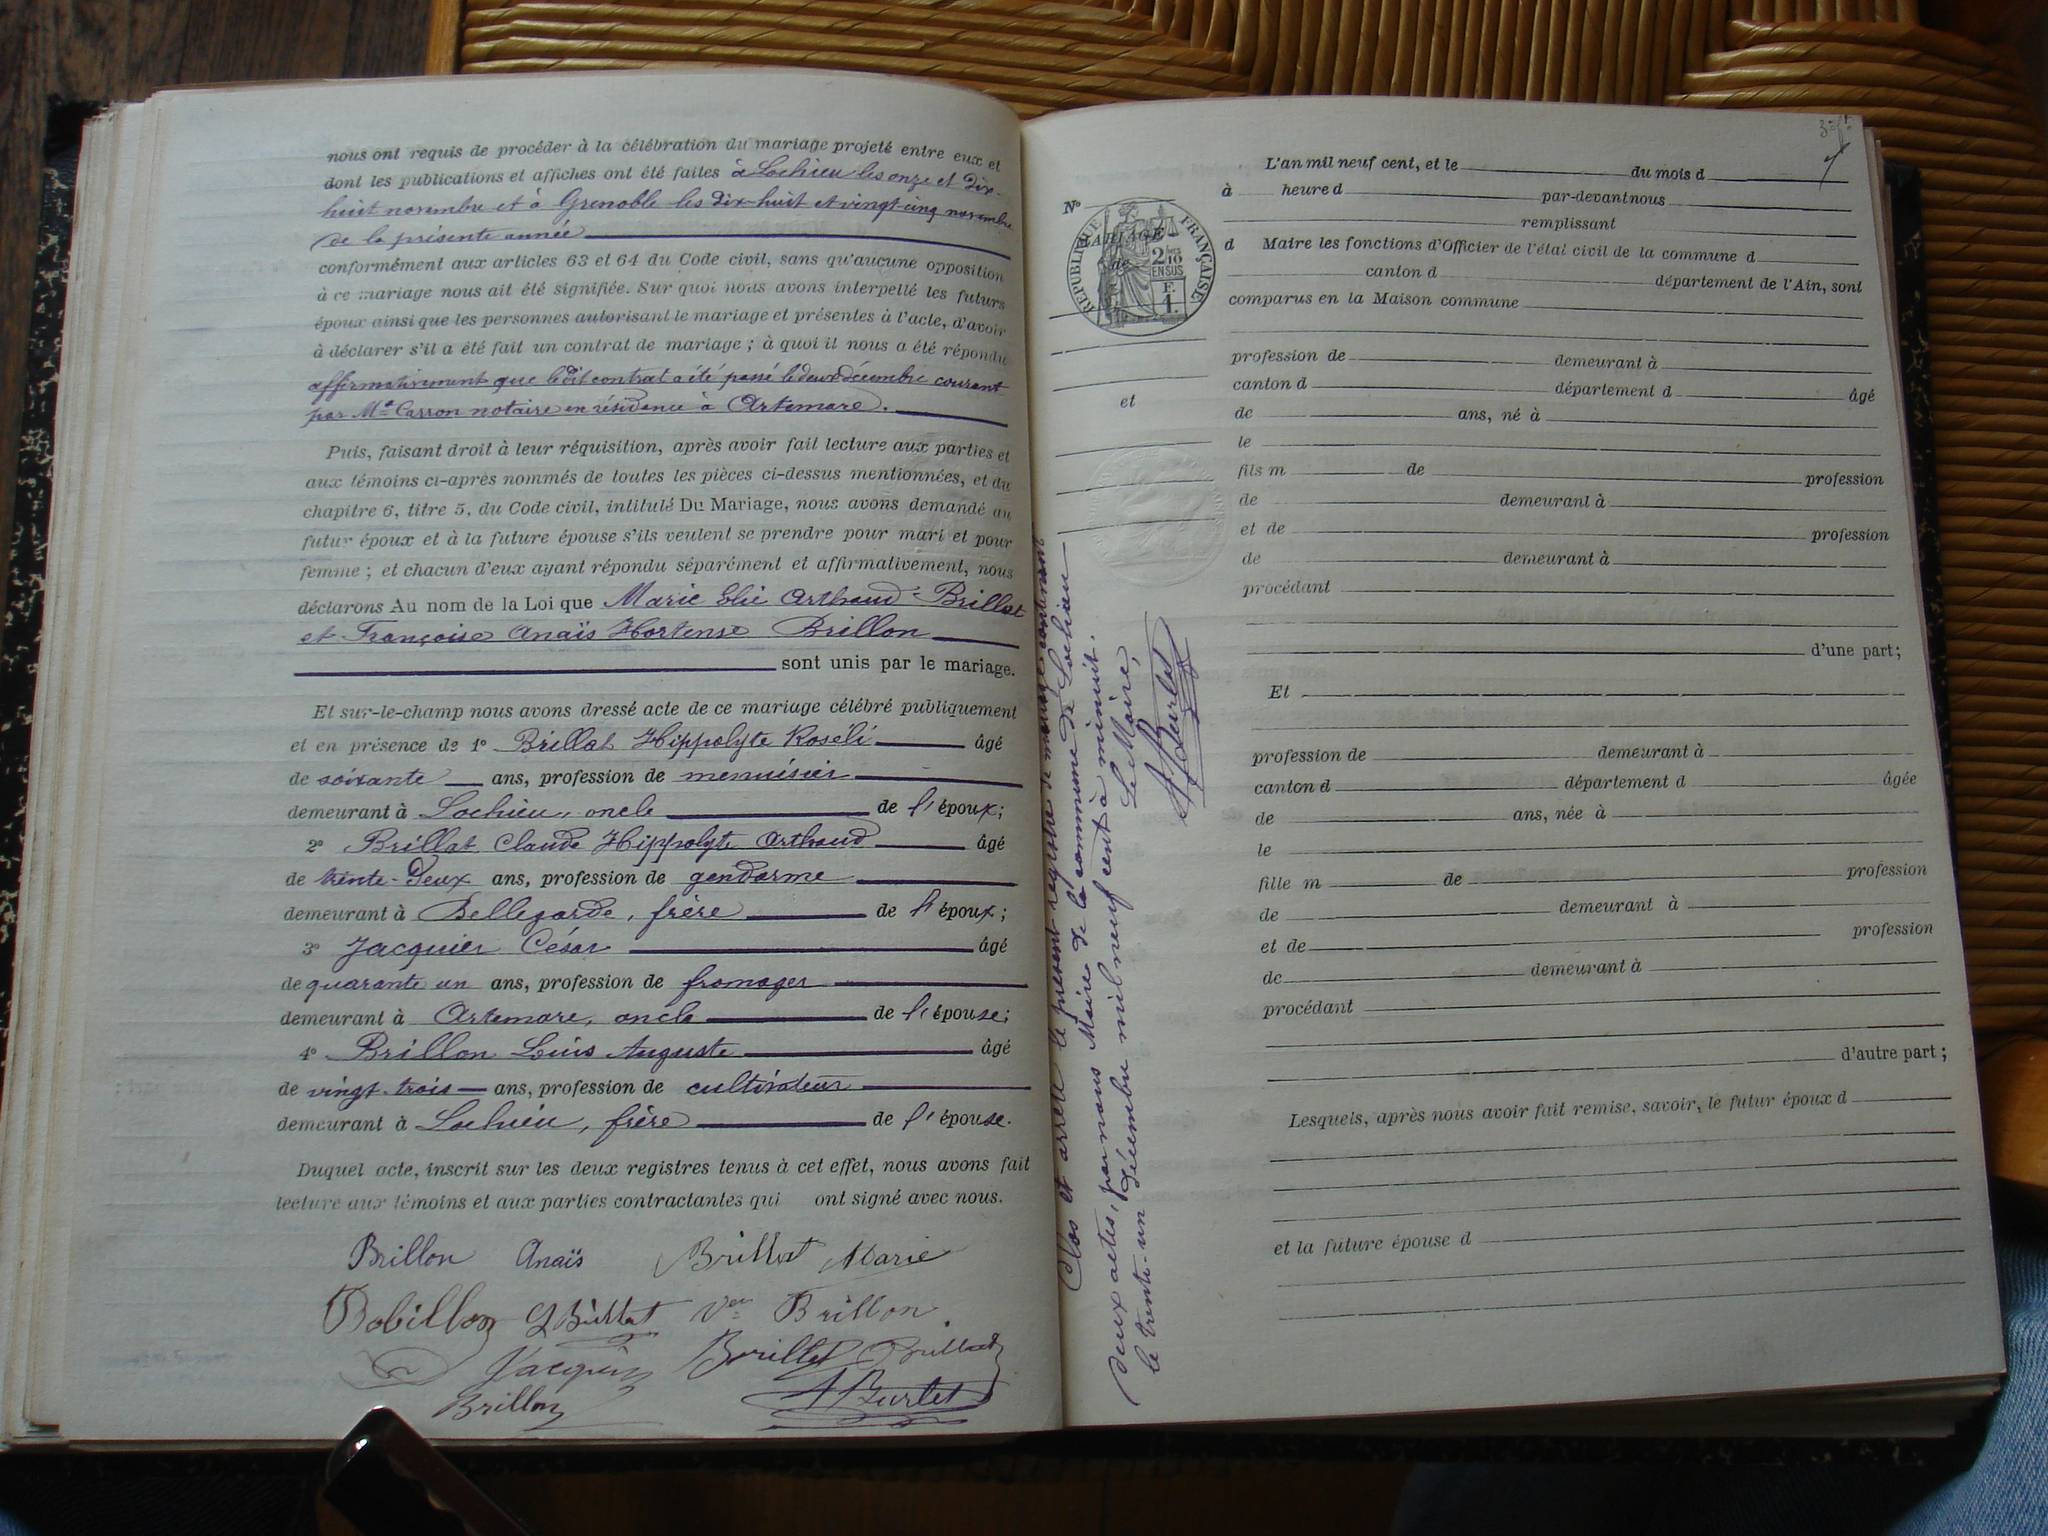 nous ont requis de procéder à la célébration du mariage projeté entre eux et
dont les publications et affiches ont été faites à Lochieu les onze et dix-
huit novembre et à Grenoble les dix-huit et vingt-cinq novembre
de la présente année
conformément aux articles 63 et 64 du Code civil, sans qu'aucune opposition
à ce mariage nous ait été signifiée. Sur quoi nous avons interpellé les futurs
époux ainsi que les personnes autorisant le mariage et présentes à l'acte, d'avoir
à déclarer s'il a été fait un contrat de mariage ; à quoi il nous a été répondu
affirmativement que le dit contrat a été passé le deux décembre courant
par Me Carron notaire en résidence à Artemare.
Puis, faisant droit à leur réquisition, après avoir fait lecture aux parties et
aux témoins ci-après nommés de toutes les pièces ci-dessus mentionnées, et du
chapitre 6, titre 5, du Code civil, intitulé Du Mariage, nous avons demandé au
futur époux et à la future épouse s'ils veulent se prendre pour mari et pour
femme ; et chacun d'eux ayant répondu séparément et affirmativement, nous
déclarons Au nom de la Loi que Marie Elie Arthaud Brillat
et Françoise Anaïs Hortense Brillon
sont unis par le mariage.
Et sur-le-champ nous avons dressé acte de ce mariage célébré publiquement
et en présence de 1° Brillat Hippolyte Roseli âgé
de soixante ans, profession de menuisier
demeurant à Lochieu, oncle de l'époux;
2° Brillat Claude Hippolyte Arthaud âgé
de trente-deux ans, profession de gendarme
demeurant à Bellegarde, frère de l'époux;
3° Jacquier César âgé
de quarante un ans, profession de fromager
demeurant à Artemare, oncle de l'épouse;
4° Brillon Louis Auguste âgé
de vingt-trois ans, profession de cultivateur
demeurant à Lochieu, frère de l'épouse.
Duquel acte, inscrit sur les deux registres tenus à cet effet, nous avons fait
lecture aux témoins et aux parties contractantes qui ont signé avec nous.
Brillon Anaïs Brillat Marie
Robillon Brillat Vve Brillon
Jacquier Brillat Brillat
Brillon A Burlet
Clos et arrêté le présent registre de mariage contenant
deux actes, par nous Maire de la commune de Lochieu
le trente-un décembre mil neuf cent à minuit.
Le Maire,
A Burlet
N°
MARIAGE
de
RÉPUBLIQUE FRANÇAISE
2/10 EN SUS
F.
1.
et
L'an mil neuf cent, et le du mois d
à heure d par-devant nous
remplissant
d Maire les fonctions d'Officier de l'état civil de la commune d
canton d département de l'Ain, sont
comparus en la Maison commune
profession de demeurant à
canton d département d âgé
de ans, né à
le
fils m de profession
de demeurant à
et de profession
de demeurant à
procédant
d'une part;
Et
profession de demeurant à
canton d département d âgée
de ans, née à
le
fille m de profession
de demeurant à
et de profession
de demeurant à
procédant
d'autre part;
Lesquels, après nous avoir fait remise, savoir, le futur époux d
et la future épouse d